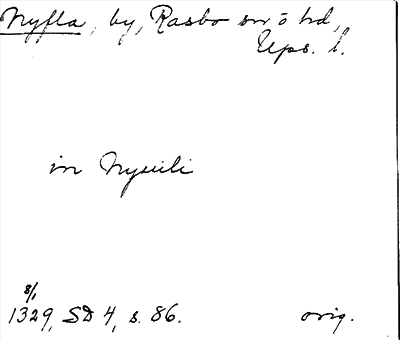 Nyfla, by, Rasbo sn o hd,
Ups. l.
in Nyuili
8/1
1329, SD 4, s. 86.
orig.